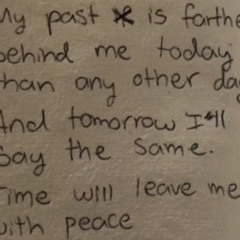 My past is farthe
behind me today
than any other day
And tomorrow I'll
say the same.
Time will leave me
with peace